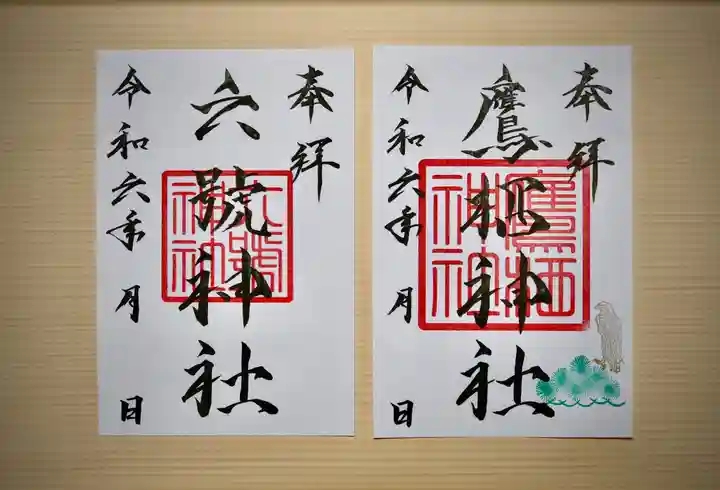 奉拝
六號神社
令和六年 月 日
六號
神社
奉拝
鷹栖神社
令和六年 月 日
鷹栖
神社